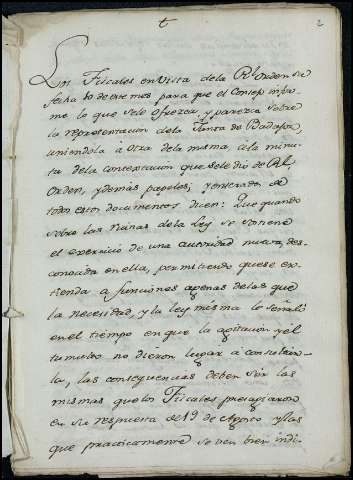 t
2
Los Fiscales en vista de la Rl. Orden de
fecha 10 de este mes para que el Consejo infor-
me lo que se le ofrezca, y parezca sobre
la representacion de la Junta de Badajoz,
uniendola á otra de la misma, á la minu-
ta de la contextacion que se le dio de Rl.
Orden, y demás papeles; y enterados de
todos estos documentos dicen: Que quando
sobre las ruinas de la Ley se sostiene
el exercicio de una autoridad nueva, des-
conocida en ella, permitiendo que se ex-
tienda a funciones agenas de las que
la necesidad, y la ley misma le señaló
en el tiempo en que la agitacion y el
tumulto no dieron lugar á consultar-
la, las consequencias deben ser las
mismas que los Fiscales presagiaron
en su respuesta de 19 de Agosto y las
que practicamente se ven bien indi-